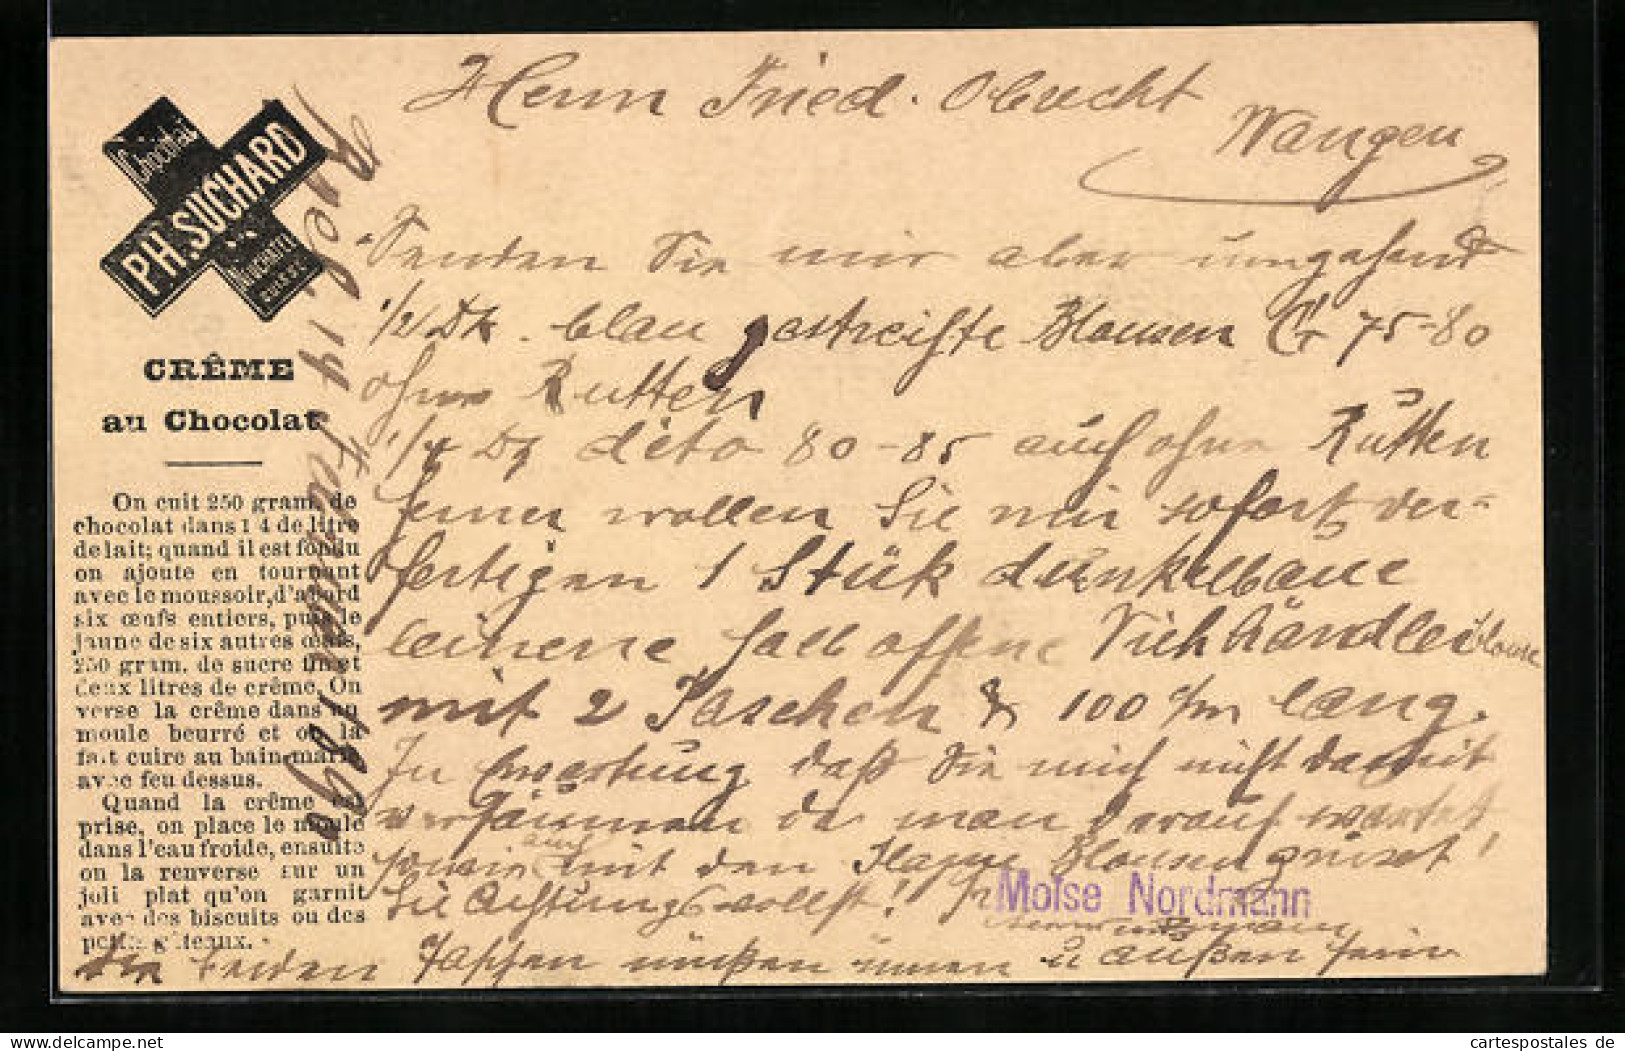 Herrn Fried. Obrecht
Wangen
Senden Sie mir aber umgehend
1/2 Dz. blau gestreifte Blousen Gr 75-80
ohne Rutten
1/4 Dz dito 80-85 auch ohne Rütten
ferner wollen Sie mir sofort ver-
fertigen 1 Stük dunkelblaue
leinene halb offene Viehhändler blouse
mit 2 Taschen & 100 c/m lang.
In Erwartung daß Sie mich nicht damit
versäumen da man darauf wartet
sowie auch mit den Blousen grüset
Sie Achtungsvollst!
Moïse Nordmann
die beiden Taschen müßen innen u außen sein
Chocolat
PH. SUCHARD
Neuchâtel
SUISSE
CRÊME
au Chocolat
On cuit 250 gram. de
chocolat dans 1 4 de litre
de lait; quand il est fondu
on ajoute en tournant
avec le moussoir, d'abord
six œufs entiers, puis le
jaune de six autres œufs,
250 gram. de sucre fin et
deux litres de crême. On
verse la crême dans un
moule beurré et on la
fait cuire au bain-marie
avec feu dessus.
Quand la crême est
prise, on place le moule
dans l'eau froide, ensuite
on la renverse sur un
joli plat qu'on garnit
avec des biscuits ou des
petits gâteaux.
cartespostales de